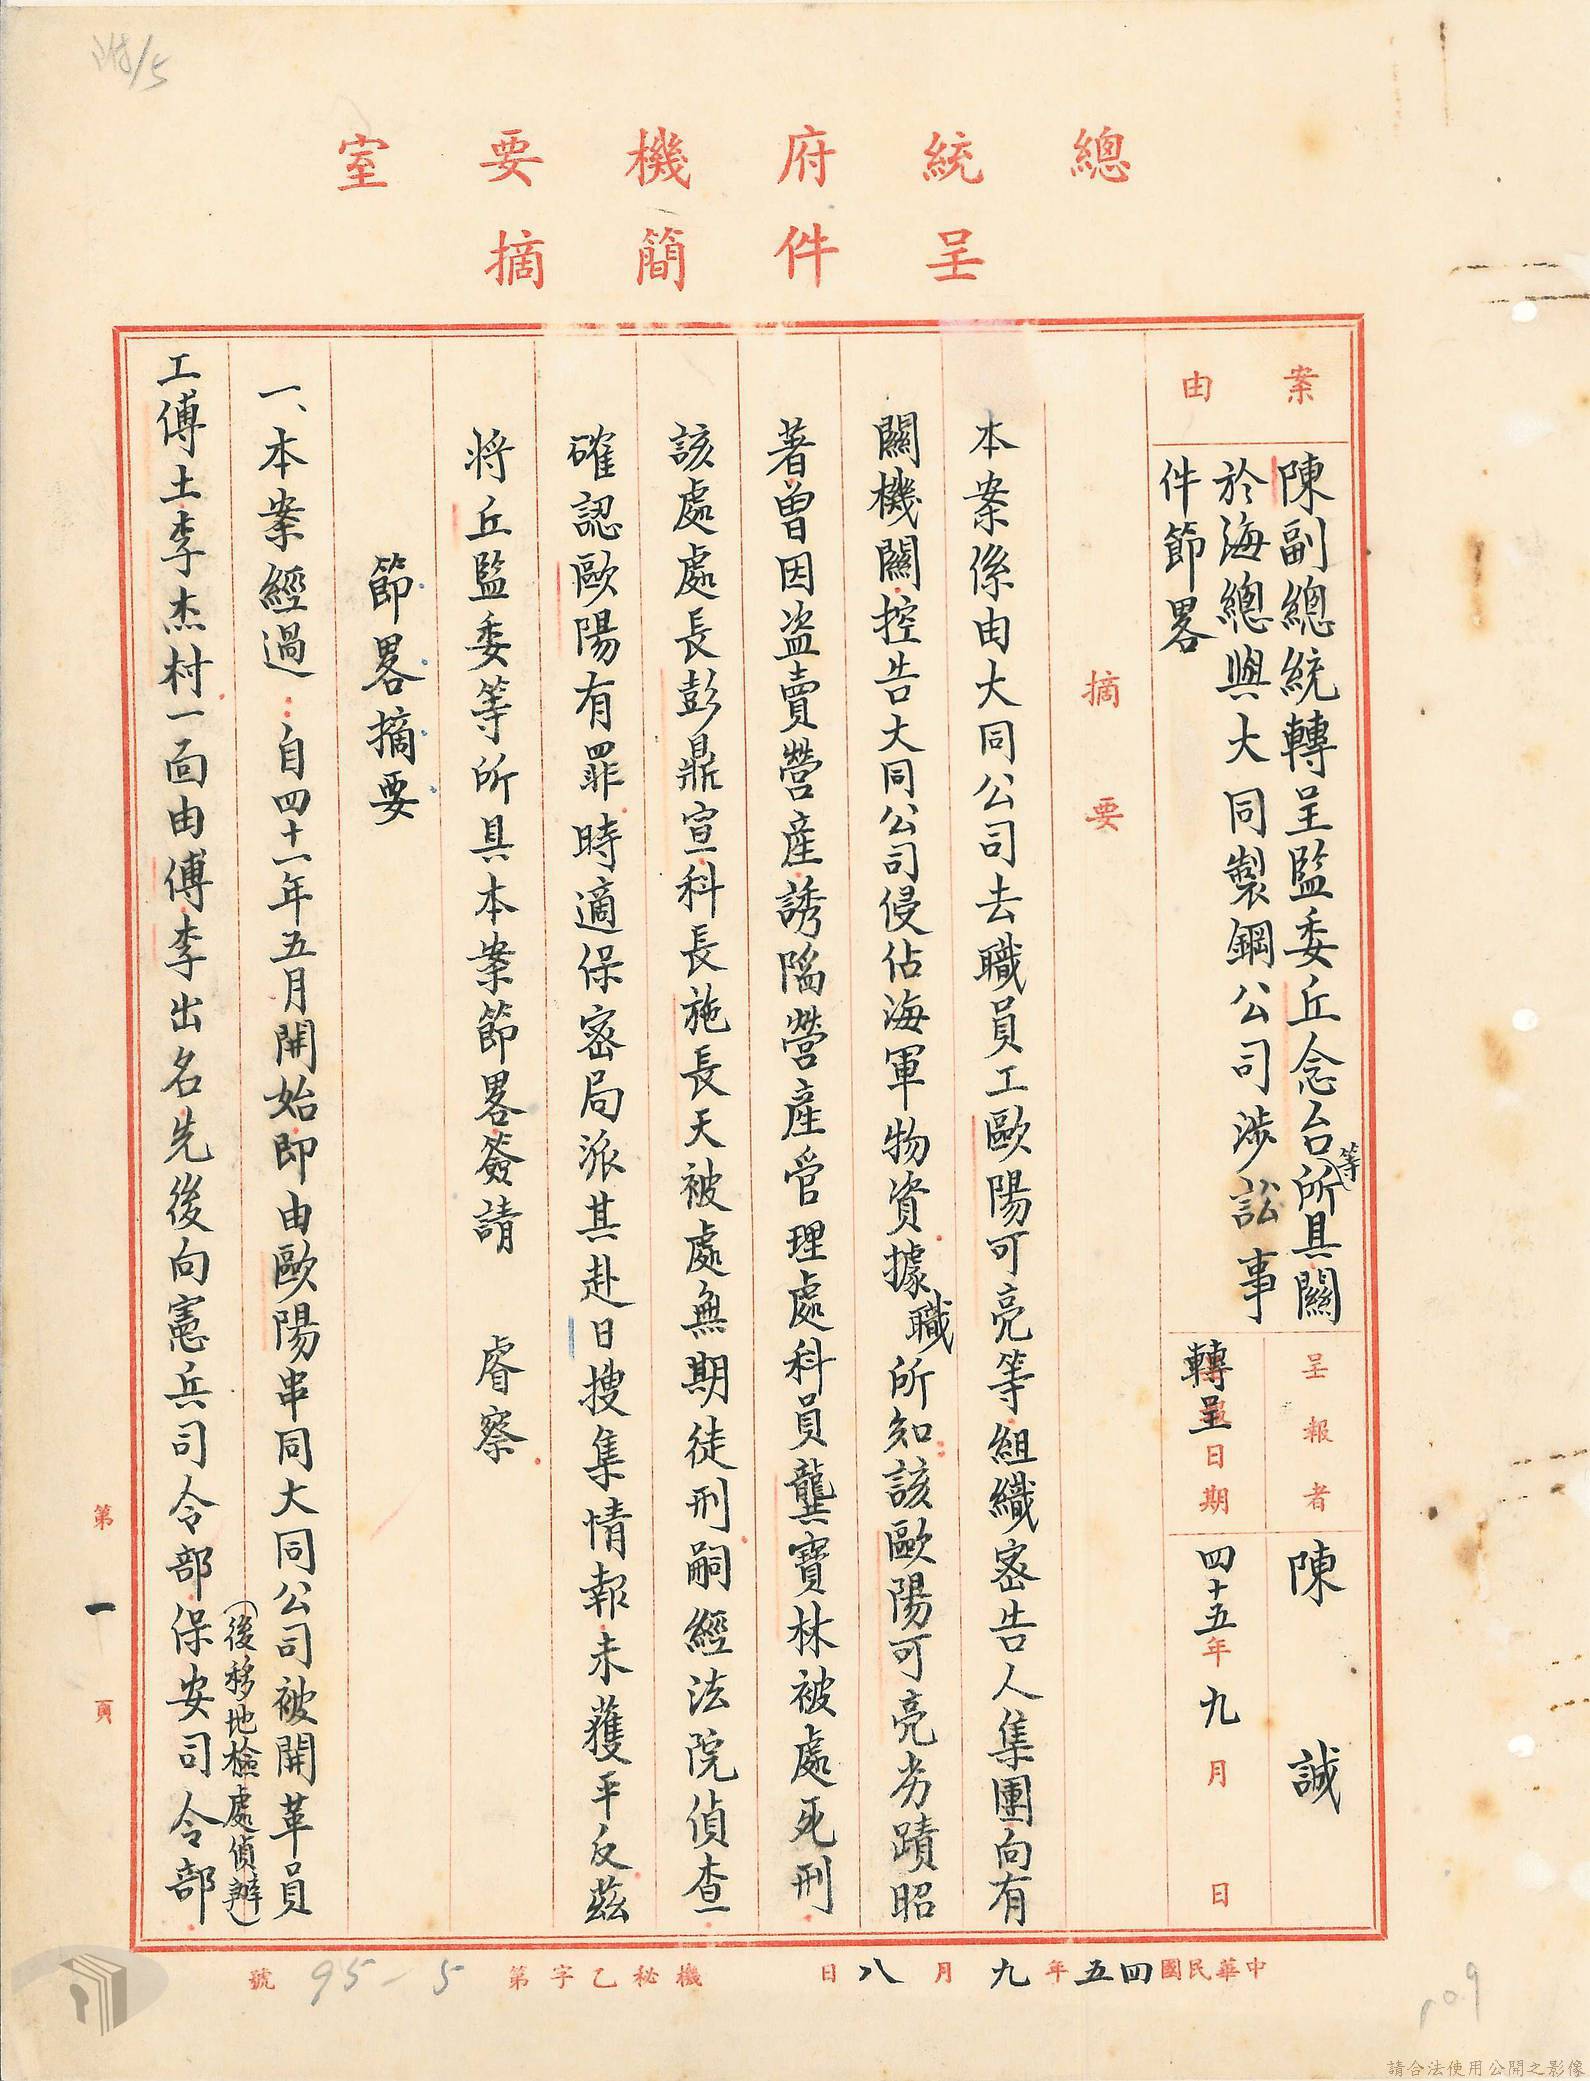 附/5
總統府機要室
呈件簡摘
案由
陳副總統轉呈監委丘念台(等)所具關
於海總與大同製鋼公司涉訟事
件節畧
呈報者
陳誠
轉呈日期
四十五年九月 日
摘要
本案係由大同公司去職員工歐陽可亮等組織密告人集團向有
關機關控告大同公司侵佔海軍物資據職所知該歐陽可亮劣蹟昭
著曾因盜賣營產誘陷營產管理處科員龔寶林被處死刑
該處處長彭鼎宣科長施長天被處無期徒刑嗣經法院偵查
確認歐陽有罪時適保密局派其赴日搜集情報未獲平反茲
將丘監委等所具本案節畧簽請 睿察
節畧摘要
一、本案經過：自四十一年五月開始即由歐陽串同大同公司被開革員
(後移地檢處偵辦)
工傅土李杰村一面由傅李出名先後向憲兵司令部保安司令部
第一頁
中華民國四五年九月八日
機秘乙字第 95-5 號
p09
請合法使用公開之影像